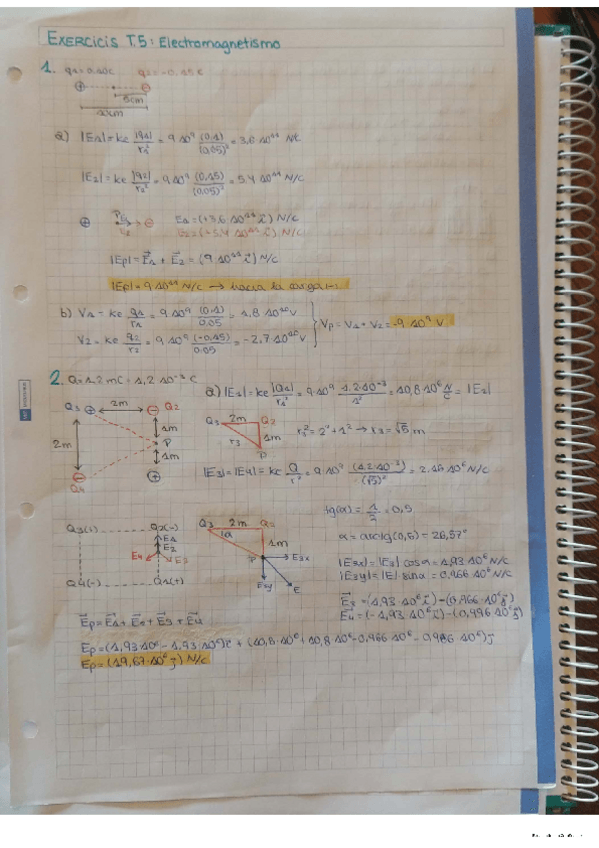 EXERCICIS T.5: Electromagnetismo
1. q1=0,10C q2=-0,15C
5cm
10cm
a) |E1|= ke |q1|/r1² = 9·10⁹ (0,1)/(0,05)² = 3,6·10¹¹ N/C
|E2|= ke |q2|/r2² = 9·10⁹ (0,15)/(0,05)² = 5,4·10¹¹ N/C
E1=(+3,6·10¹¹ i) N/C
E2
E2=(+5,4·10¹¹ i) N/C
|Ep|= E1 + E2 = (9·10¹¹ i) N/C
|Ep|= 9·10¹¹ N/C → hacia la carga (-)
b) V1= ke q1/r1 = 9·10⁹ (0,1)/0,05 = 1,8·10¹⁰ V
V2= ke q2/r2 = 9·10⁹ (-0,15)/0,05 = -2,7·10¹⁰ V
Vp= V1+V2= -9·10⁹ V
2. Q=1,2mC = 1,2·10⁻³ C
a) |E1|= ke |Q1|/r1² = 9·10⁹ 1,2·10⁻³/1² = 10,8·10⁶ N/C = |E2|
Q3 2m Q2
1m
P
2m
1m
Q4
Q3 2m Q2
1m
r3
P
r3²= 2²+1² → r3=√5 m
|E3|=|E4|= ke Q/r² = 9·10⁹ (1,2·10⁻³)/(√5)² = 2,16·10⁶ N/C
tg(α)= 1/2 = 0,5
α= arctg(0,5) = 26,57°
Q3(+) Q2(-)
E1
E2
E4 E3
Q4(-) Q1(+)
Q3 2m Q2
α
1m
P E3x
E3y E
|E3x|= |E3| cosα = 1,93·10⁶ N/C
|E3y|= |E| sinα = 0,966·10⁶ N/C
E3 =(1,93·10⁶ i)-(0,966·10⁶ j)
E4=(-1,93·10⁶ i)-(0,996·10⁶ j)
Ep= E1+E2+E3+E4
Ep=(1,93·10⁶-1,93·10⁶)i + (10,8·10⁶+10,8·10⁶-0,966·10⁶-0,966·10⁶)j
Ep=(19,67·10⁶ j) N/C